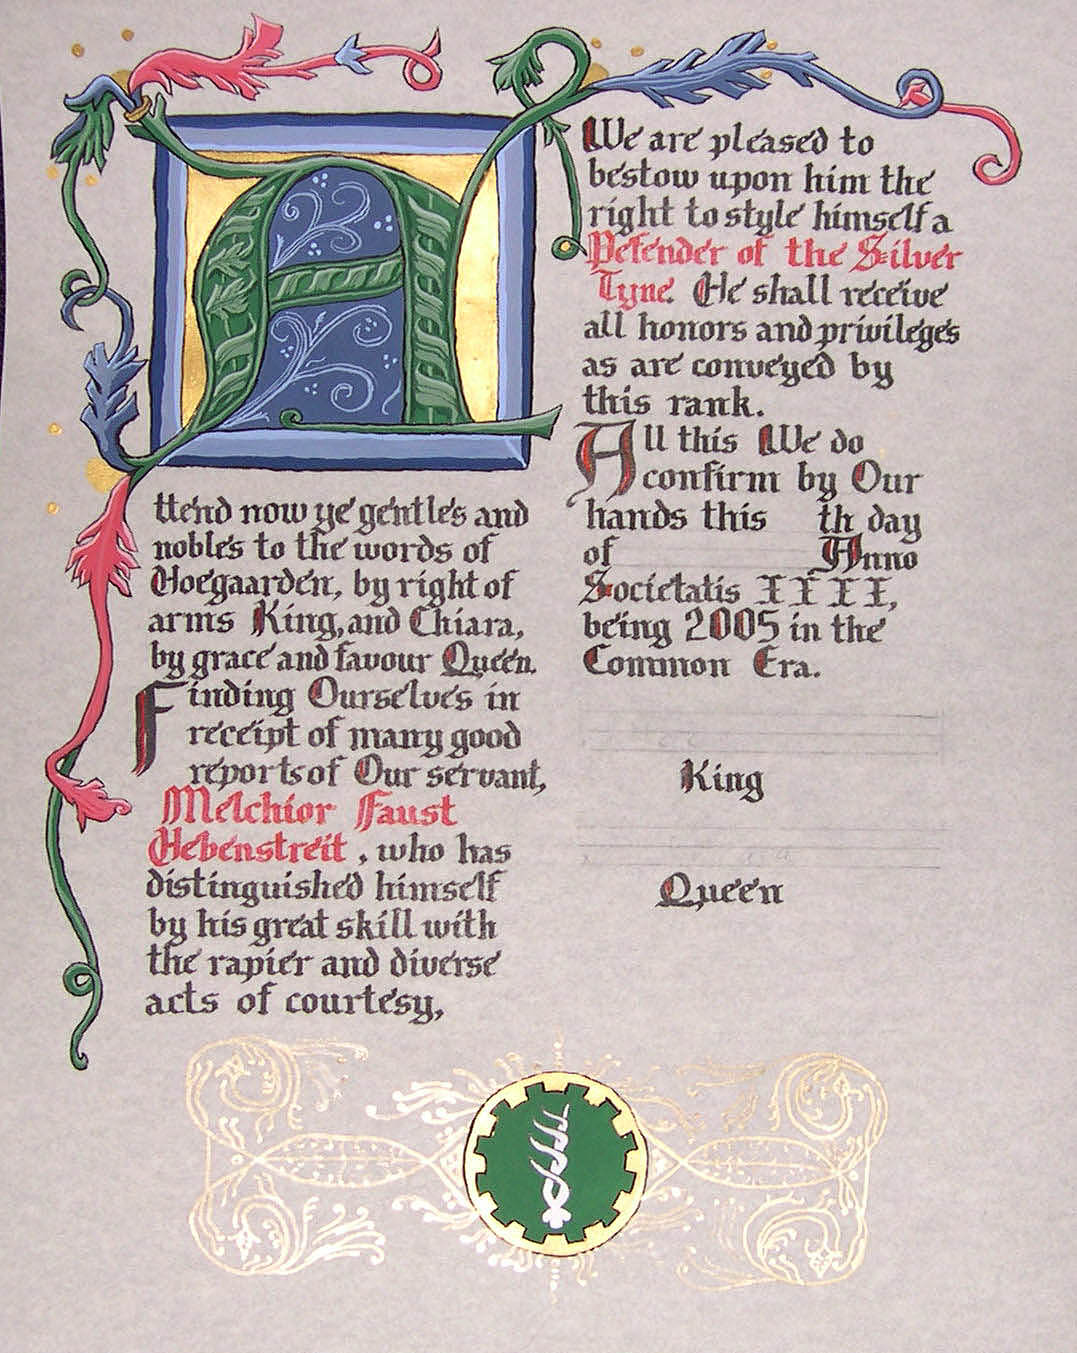 Attend now ye gentles and
nobles to the words of
Hoegaarden, by right of
arms King, and Chiara,
by grace and favour Queen.
Finding Ourselves in
receipt of many good
reports of Our servant,
Melchior Faust
Hebenstreit, who has
distinguished himself
by his great skill with
the rapier and diverse
acts of courtesy,
We are pleased to
bestow upon him the
right to style himself a
Defender of the Silver
Tyne. He shall receive
all honors and privileges
as are conveyed by
this rank.
All this We do
confirm by Our
hands this th day
of Anno
Societatis XXXX,
being 2005 in the
Common Era.
King
Queen